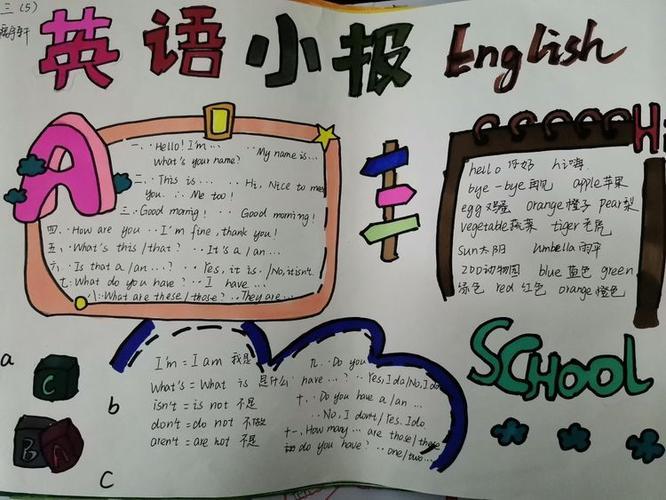 三（5）
英语小报 English
A
一、·Hello! I'm... ··My name is...
What's your name?
二、·This is... ··Hi, Nice to meet
you. ·· Me too!
三·Good marnig! ·· Good morning!
四·How are you ··I'm fine, thank you!
五、·What's this/that? ··It's a/an...
六·Is that a/an...? ··Yes, it is./No, it isn't.
七:What do you have? ··I have...
八:What are these/those? ··They are...
Hi
hello 你好 hi 嗨
bye-bye 再见 apple 苹果
egg 鸡蛋 orange 橙子 pear 梨
vegetable 蔬菜 tiger 老虎
sun 太阳 umbella 雨伞
zoo 动物园 blue 蓝色 green
绿色 red 红色 orange 橙色
SCHOOL
a
C
B
A
b
C
I'm = I am 我是
What's = What is 是什么
isn't = is not 不是
don't = do not 不做
aren't = are not 不是
九.·Do you
have...? ··Yes, I do/No, I do
十.·Do you have a/an...
··No, I don't/Yes. I do.
十一、How many... are those/these
do you have? ··one/two...